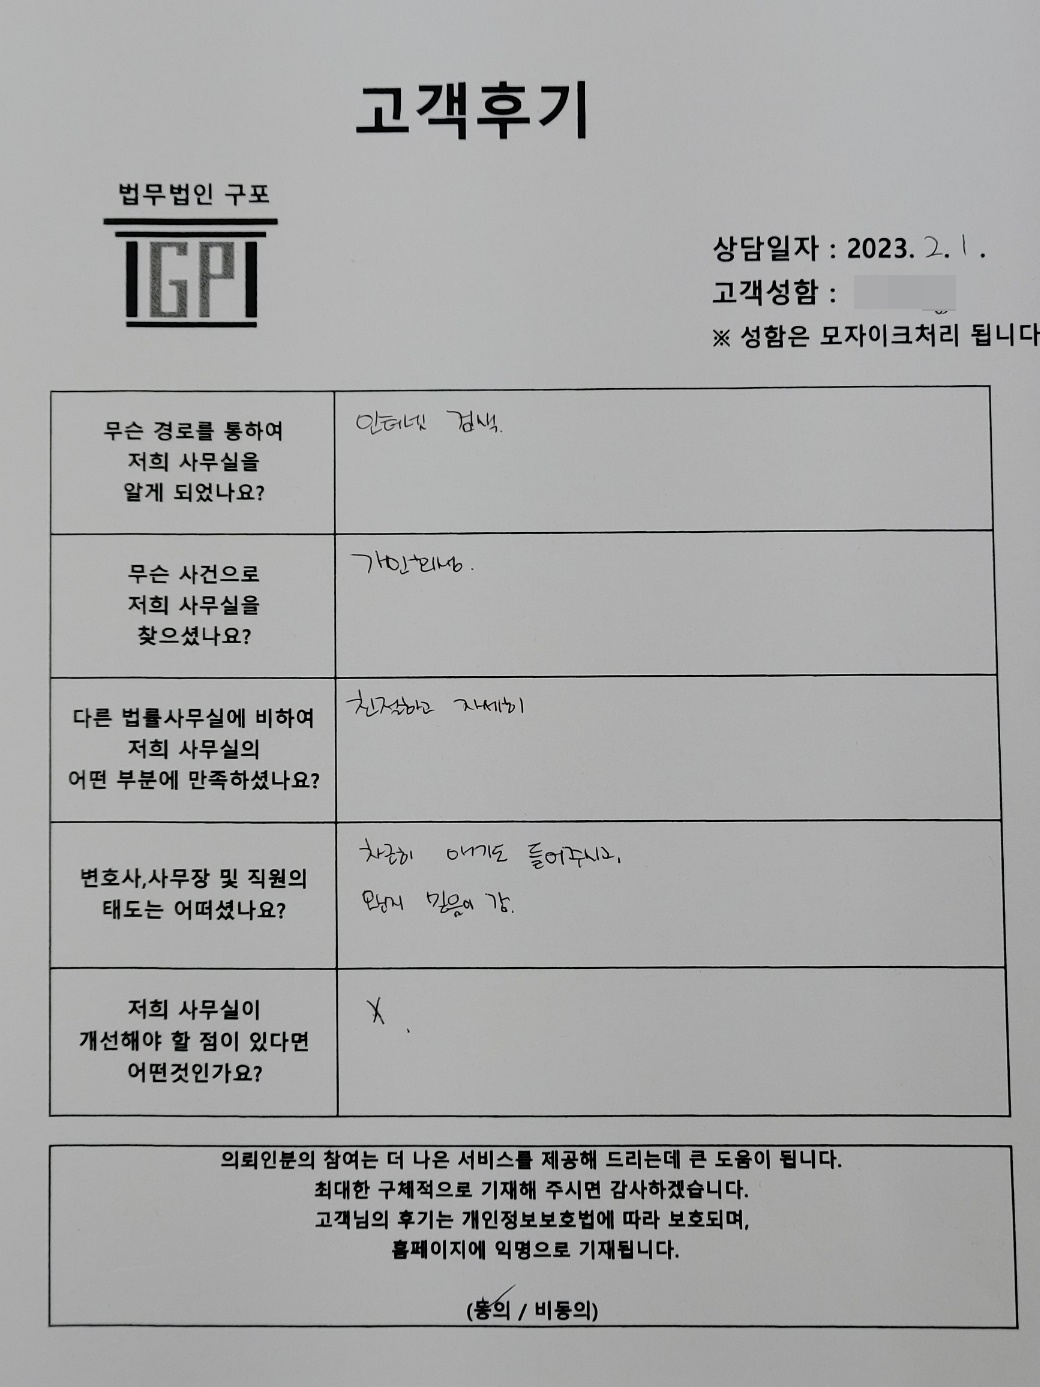 고객후기
법무법인 구포
IGPI
상담일자 : 2023. 2. 1.
고객성함 :
※ 성함은 모자이크처리 됩니다
무슨 경로를 통하여
저희 사무실을
알게 되었나요?
인터넷 검색.
무슨 사건으로
저희 사무실을
찾으셨나요?
개인회생.
다른 법률사무실에 비하여
저희 사무실의
어떤 부분에 만족하셨나요?
친절하고 자세히
변호사,사무장 및 직원의
태도는 어떠셨나요?
차근히 얘기도 들어주시고,
왠지 믿음이 감.
저희 사무실이
개선해야 할 점이 있다면
어떤것인가요?
X.
의뢰인분의 참여는 더 나은 서비스를 제공해 드리는데 큰 도움이 됩니다.
최대한 구체적으로 기재해 주시면 감사하겠습니다.
고객님의 후기는 개인정보보호법에 따라 보호되며,
홈페이지에 익명으로 기재됩니다.
(동의 / 비동의)